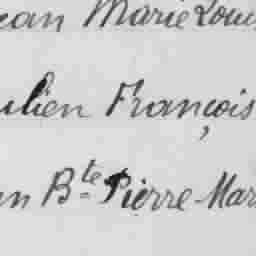 ean Marie Louis
ulien François
an Bte Pierre-Mar